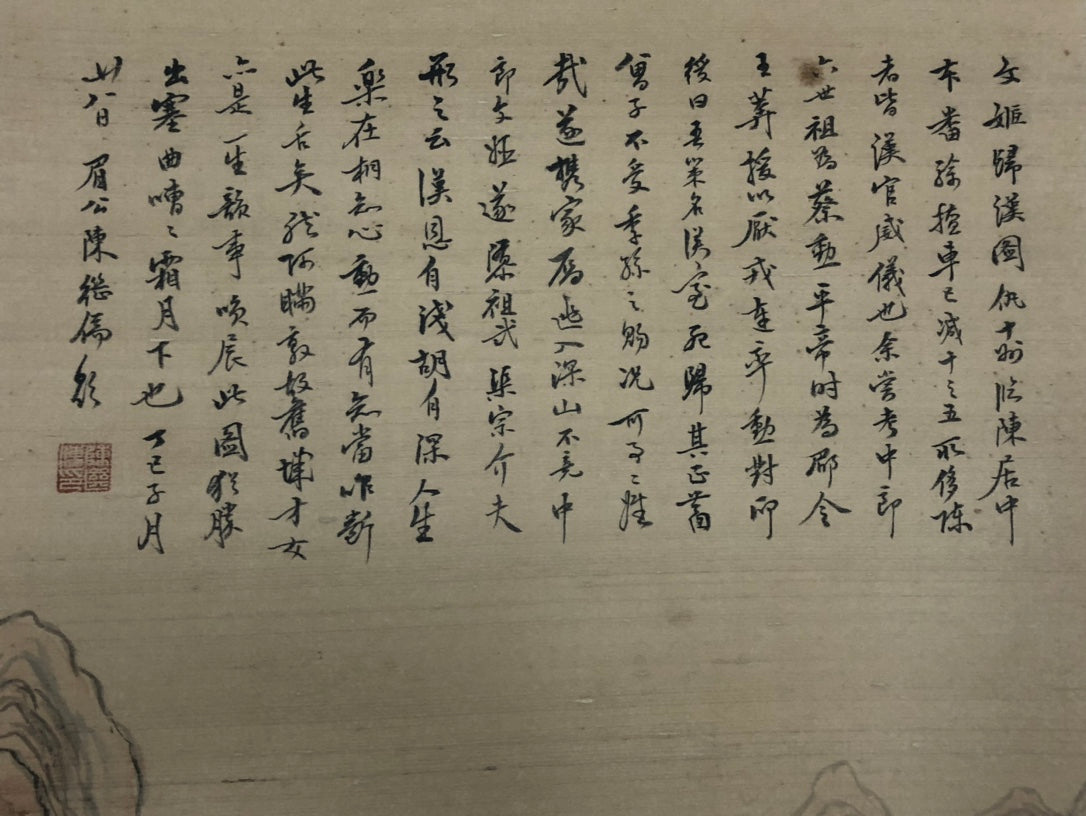 文姬歸漢圖仇十州臨陳居中
本旃除輜車已減十之五所侈陳
者皆漢官威儀也余嘗考中郎
六世祖為蔡勳平帝時為郿令
王莽授以厭戎連率勳對印
綬曰吾策名漢室死歸其正昔
曾子不受季孫之賜況可事二姓
哉遂攜家屬逃入深山不意中
郎文姬遂隳祖武渠宗介夫
形之云漢恩自淺胡自深人生
樂在相知心動而有知當咋斷
此生舌矣然阿瞞敦故舊憐才女
亦是一生韻事喚展此圖猶勝
出塞曲嘈嘈霜月下也 丁巳子月
廿八日 眉公陳繼儒題